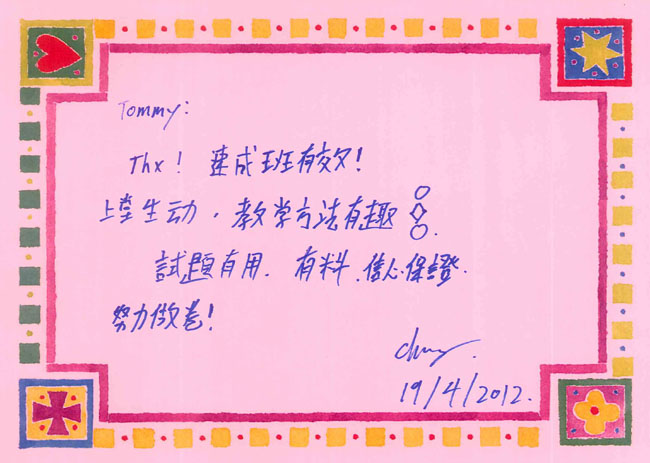 Tommy:
Thx! 速成班有效!
上堂生动,教学方法有趣.
試題有用.有料.信心保證.
努力做卷!
19/4/2012.